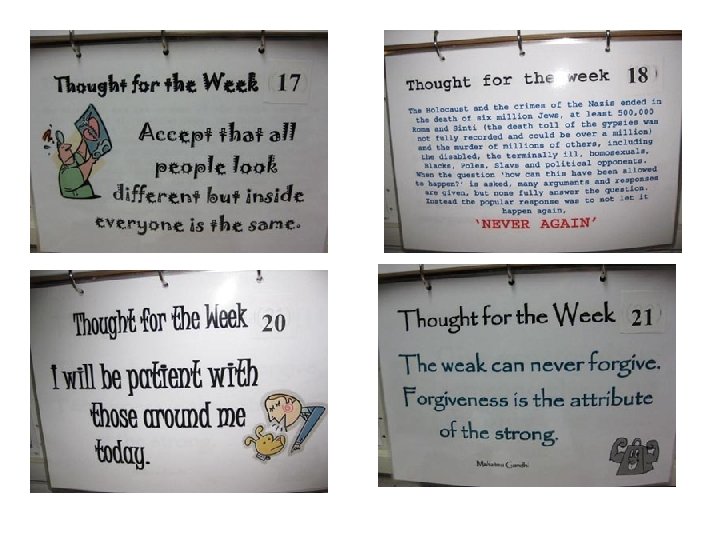 Thought for the Week 17
Accept that all
people look
different but inside
everyone is the same.
Thought for the week 18
The Holocaust and the crimes of the Nazis ended in
the death of six million Jews, at least 500,000
Roma and Sinti (the death toll of the gypsies was
not fully recorded and could be over a million)
and the murder of millions of others, including
the disabled, the terminally ill, homosexuals,
Blacks, Poles, Slavs and political opponents.
When the question 'how can this have been allowed
to happen?' is asked, many arguments and responses
are given, but none fully answer the question.
Instead the popular response was to not let it
happen again,
'NEVER AGAIN'
Thought for the Week 20
I will be patient with
those around me
today.
Thought for the Week 21
The weak can never forgive.
Forgiveness is the attribute
of the strong.
Mahatma Gandhi